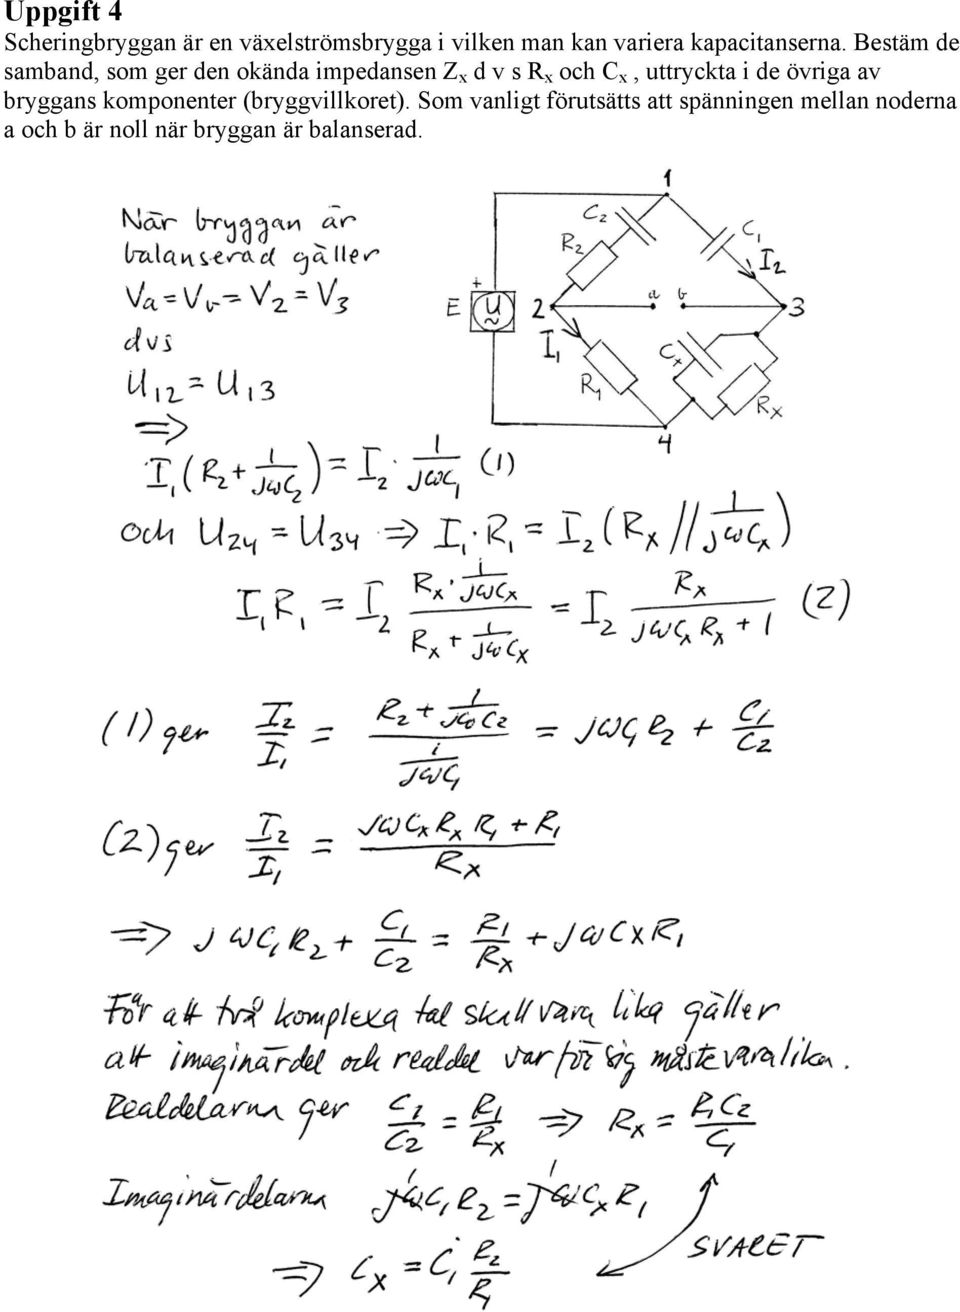 Uppgift 4
Scheringbryggan är en växelströmsbrygga i vilken man kan variera kapacitanserna. Bestäm de
samband, som ger den okända impedansen Zx d v s Rx och Cx , uttryckta i de övriga av
bryggans komponenter (bryggvillkoret). Som vanligt förutsätts att spänningen mellan noderna
a och b är noll när bryggan är balanserad.
När bryggan är
balanserad gäller
Va = Vb = V2 = V3
dvs
U12 = U13
⇒
1
C2
C1
R2
I2
+
E
U
~
2
a b
3
I1
Cx
R1
Rx
4
I1(R2 + 1/(jωC2)) = I2 · 1/(jωC1) (1)
och U24 = U34 ⇒ I1·R1 = I2(Rx // 1/(jωCx))
I1R1 = I2 (Rx · 1/(jωCx))/(Rx + 1/(jωCx)) = I2 Rx/(jωCxRx + 1) (2)
(1) ger I2/I1 = (R2 + 1/(jωC2))/(1/(jωC1)) = jωC1R2 + C1/C2
(2) ger I2/I1 = (jωCxRxR1 + R1)/Rx
⇒ jωC1R2 + C1/C2 = R1/Rx + jωCxR1
För att två komplexa tal skall vara lika gäller
att imaginärdel och realdel var för sig måste vara lika.
Realdelarna ger C1/C2 = R1/Rx ⇒ Rx = R1C2/C1
Imaginärdelarna jωC1R2 = jωCxR1
⇒ Cx = C1 R2/R1
SVARET